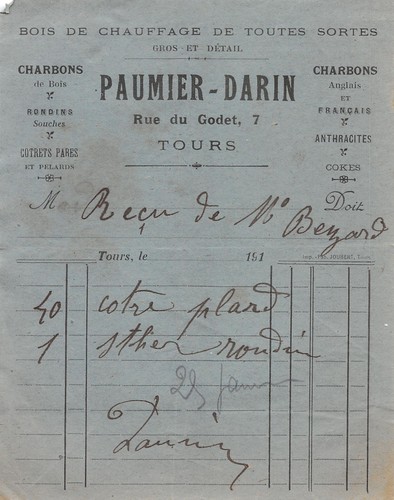 BOIS DE CHAUFFAGE DE TOUTES SORTES
GROS ET DÉTAIL
CHARBONS
de Bois
RONDINS
Souches
COTRETS PARES
ET PELARDS
PAUMIER-DARIN
Rue du Godet, 7
TOURS
CHARBONS
Anglais
ET
FRANÇAIS
ANTHRACITES
COKES
M Doit
Reçu de Mr Bezard
Tours, le 191
40 cotre plard
1 sther rondin
25